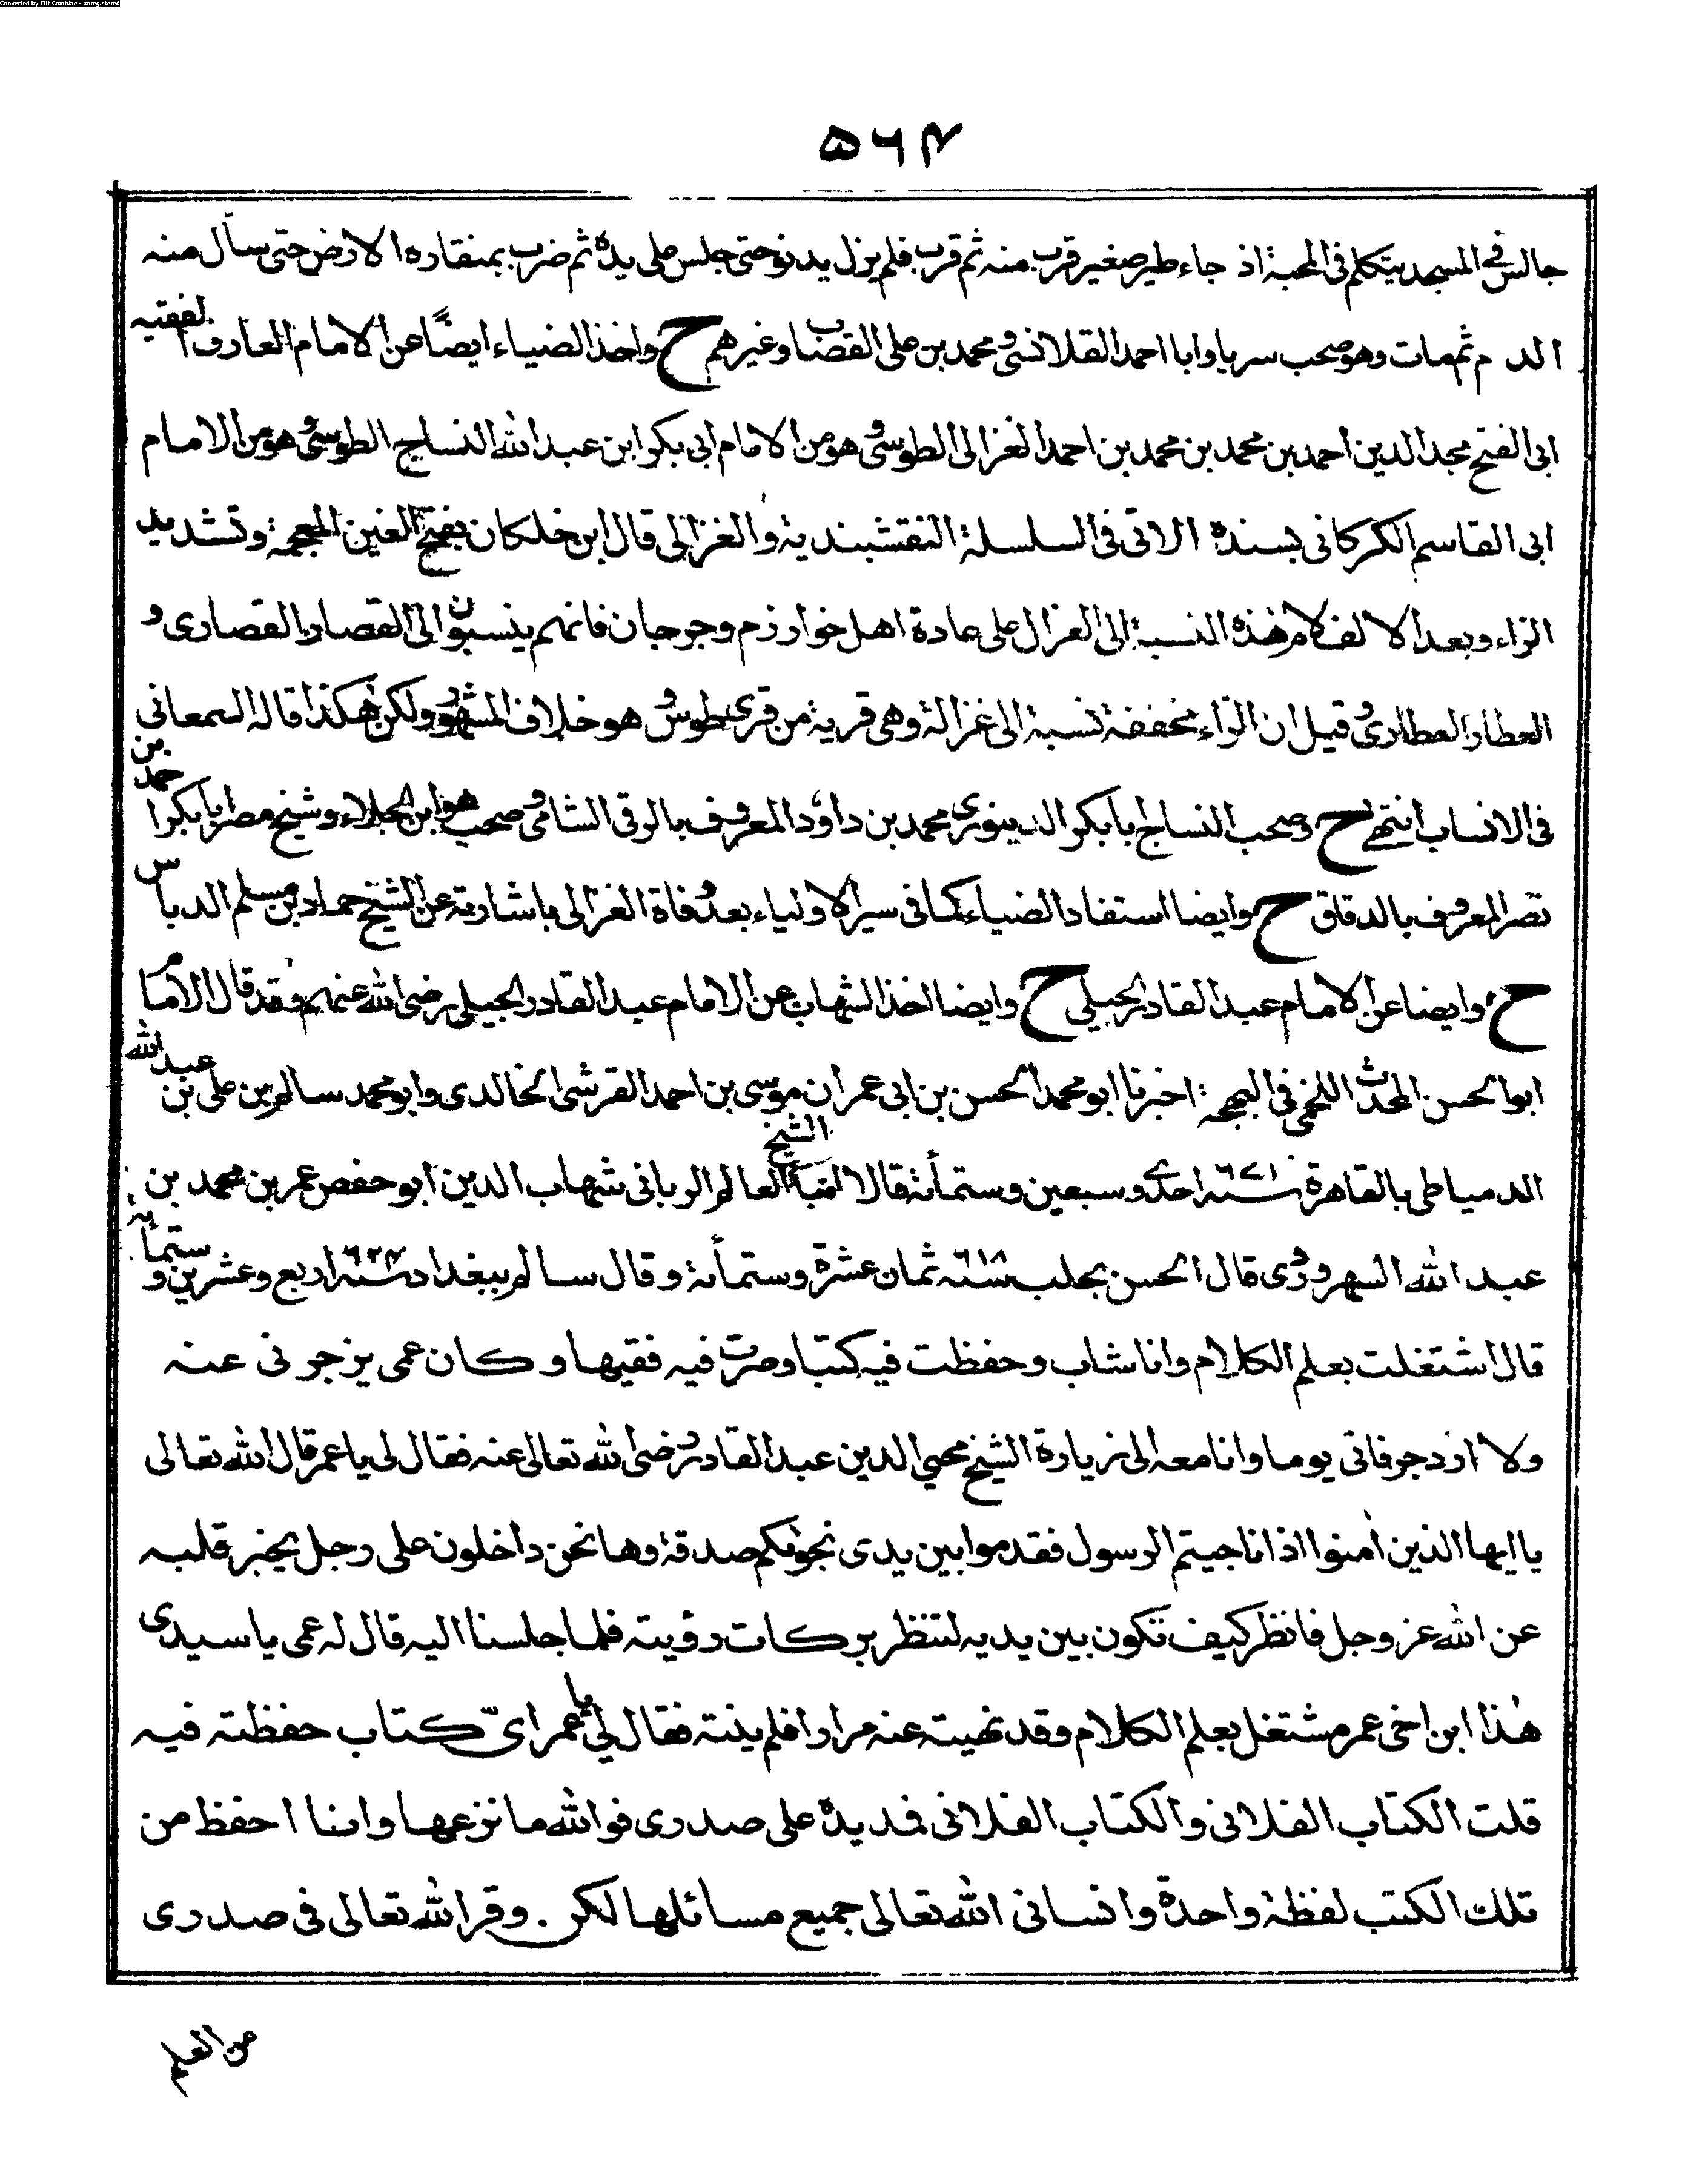 Converted by Tiff Combine - unregistered
۵۶۴
جالس فی المسجد یتکلم فی المحبة اذ جاء طیر صغیر قرب منه ثم قرب فلم یزل یدنو حتی جلس علی یدہ ثم ضرب بمنقارہ الارض حتی سأل منه
الدم ثم مات وهو صحب سریا وابا احمد القلانسی ومحمد بن علی القصاب وغیرهم ح واخذ الضیاء ایضًا عن الامام العارف الفقیه
ابی الفتح مجد الدین احمد بن محمد بن محمد بن احمد الغزالی الطوسی وهو من الامام ابی بکر ابن عبد الله النساج الطوسی وهو من الامام
ابی القاسم الکرکانی بسندہ الاتی فی السلسلة النقشبندیة والغزالی قال ابن خلکان بفتح الغین المعجمة وتشدید
الزاء وبعد الالف لام هذہ النسبة الی الغزال علی عادة اهل خوارزم وجرجان فانهم ینسبون الی القصار بالقصاری و
العطار العطاری وقیل ان الزاء مخففة نسبة الی غزالة وهی قریة من قری طوس وهو خلاف المشهور ولکن هکذا قاله السمعانی
فی الانساب انتهے ح وصحب النساج ابا بکر الدینوری محمد بن داود المعروف بالرقی الشامی وصحب هو ابن الجلاء وشیخ مصر ابا بکر احمد بن
نصر المعروف بالدقاق ح وایضا استفاد الضیاء کما فی سیر الاولیاء بعد وفاة الغزالی باشارته عن الشیخ حماد بن مسلم الدباس
ح وایضا عن الامام عبد القادر الجیلی ح وایضا اخذ الشهاب عن الامام عبد القادر الجیلی رضی الله عنهم وقد قال الامام
ابو الحسن المحدث اللخمی فی البهجة اخبرنا ابو محمد الحسن بن ابی عمران موسی بن احمد القرشی الخالدی وابو محمد سالم بن علی بن عبد الله
الدمیاطی بالقاهرة سنه ۶۷۱ احدے وسبعین وستمأئة قالا انبأنا الشیخ العالم الربانی شهاب الدین ابو حفص عمر بن محمد بن
عبد الله السهروردی قال الحسن بحلب سنه ۶۱۸ ثمان عشرة وستمأئة وقال سالم ببغداد سنه ۶۲۴ اربع وعشرین وستمأئة
قال اشتغلت بعلم الکلام وانا شاب وحفظت فیه کتبا وصرت فیه فقیها وکان عمی یزجرنی عنه
ولا ازدجر فاتی یوما وانا معه الی زیارة الشیخ محیی الدین عبد القادر رضی الله تعالی عنه فقال لی یا عمر قال الله تعالی
یا ایها الذین اٰمنوا اذا ناجیتم الرسول فقدموا بین یدی نجوٰىکم صدقة وها نحن داخلون علی رجل یخبر قلبه
عن الله عز وجل فانظر کیف تکون بین یدیه لتنظر برکات رؤیته فلما جلسنا الیه قال له عمی یا سیدی
هٰذا ابن اخی عمر مشتغل بعلم الکلام وقد نهیته عنه مرارا فلم ینته فقال لی یا عمر ایّ کتاب حفظته فیه
قلت الکتاب الفلانی والکتاب الفلانی فمد یدہ علی صدری فوالله ما نزعها وانا احفظ من
تلك الکتب لفظة واحدة وانسانی الله تعالی جمیع مسائلها لکن . وقر الله تعالی فی صدری
من العلم